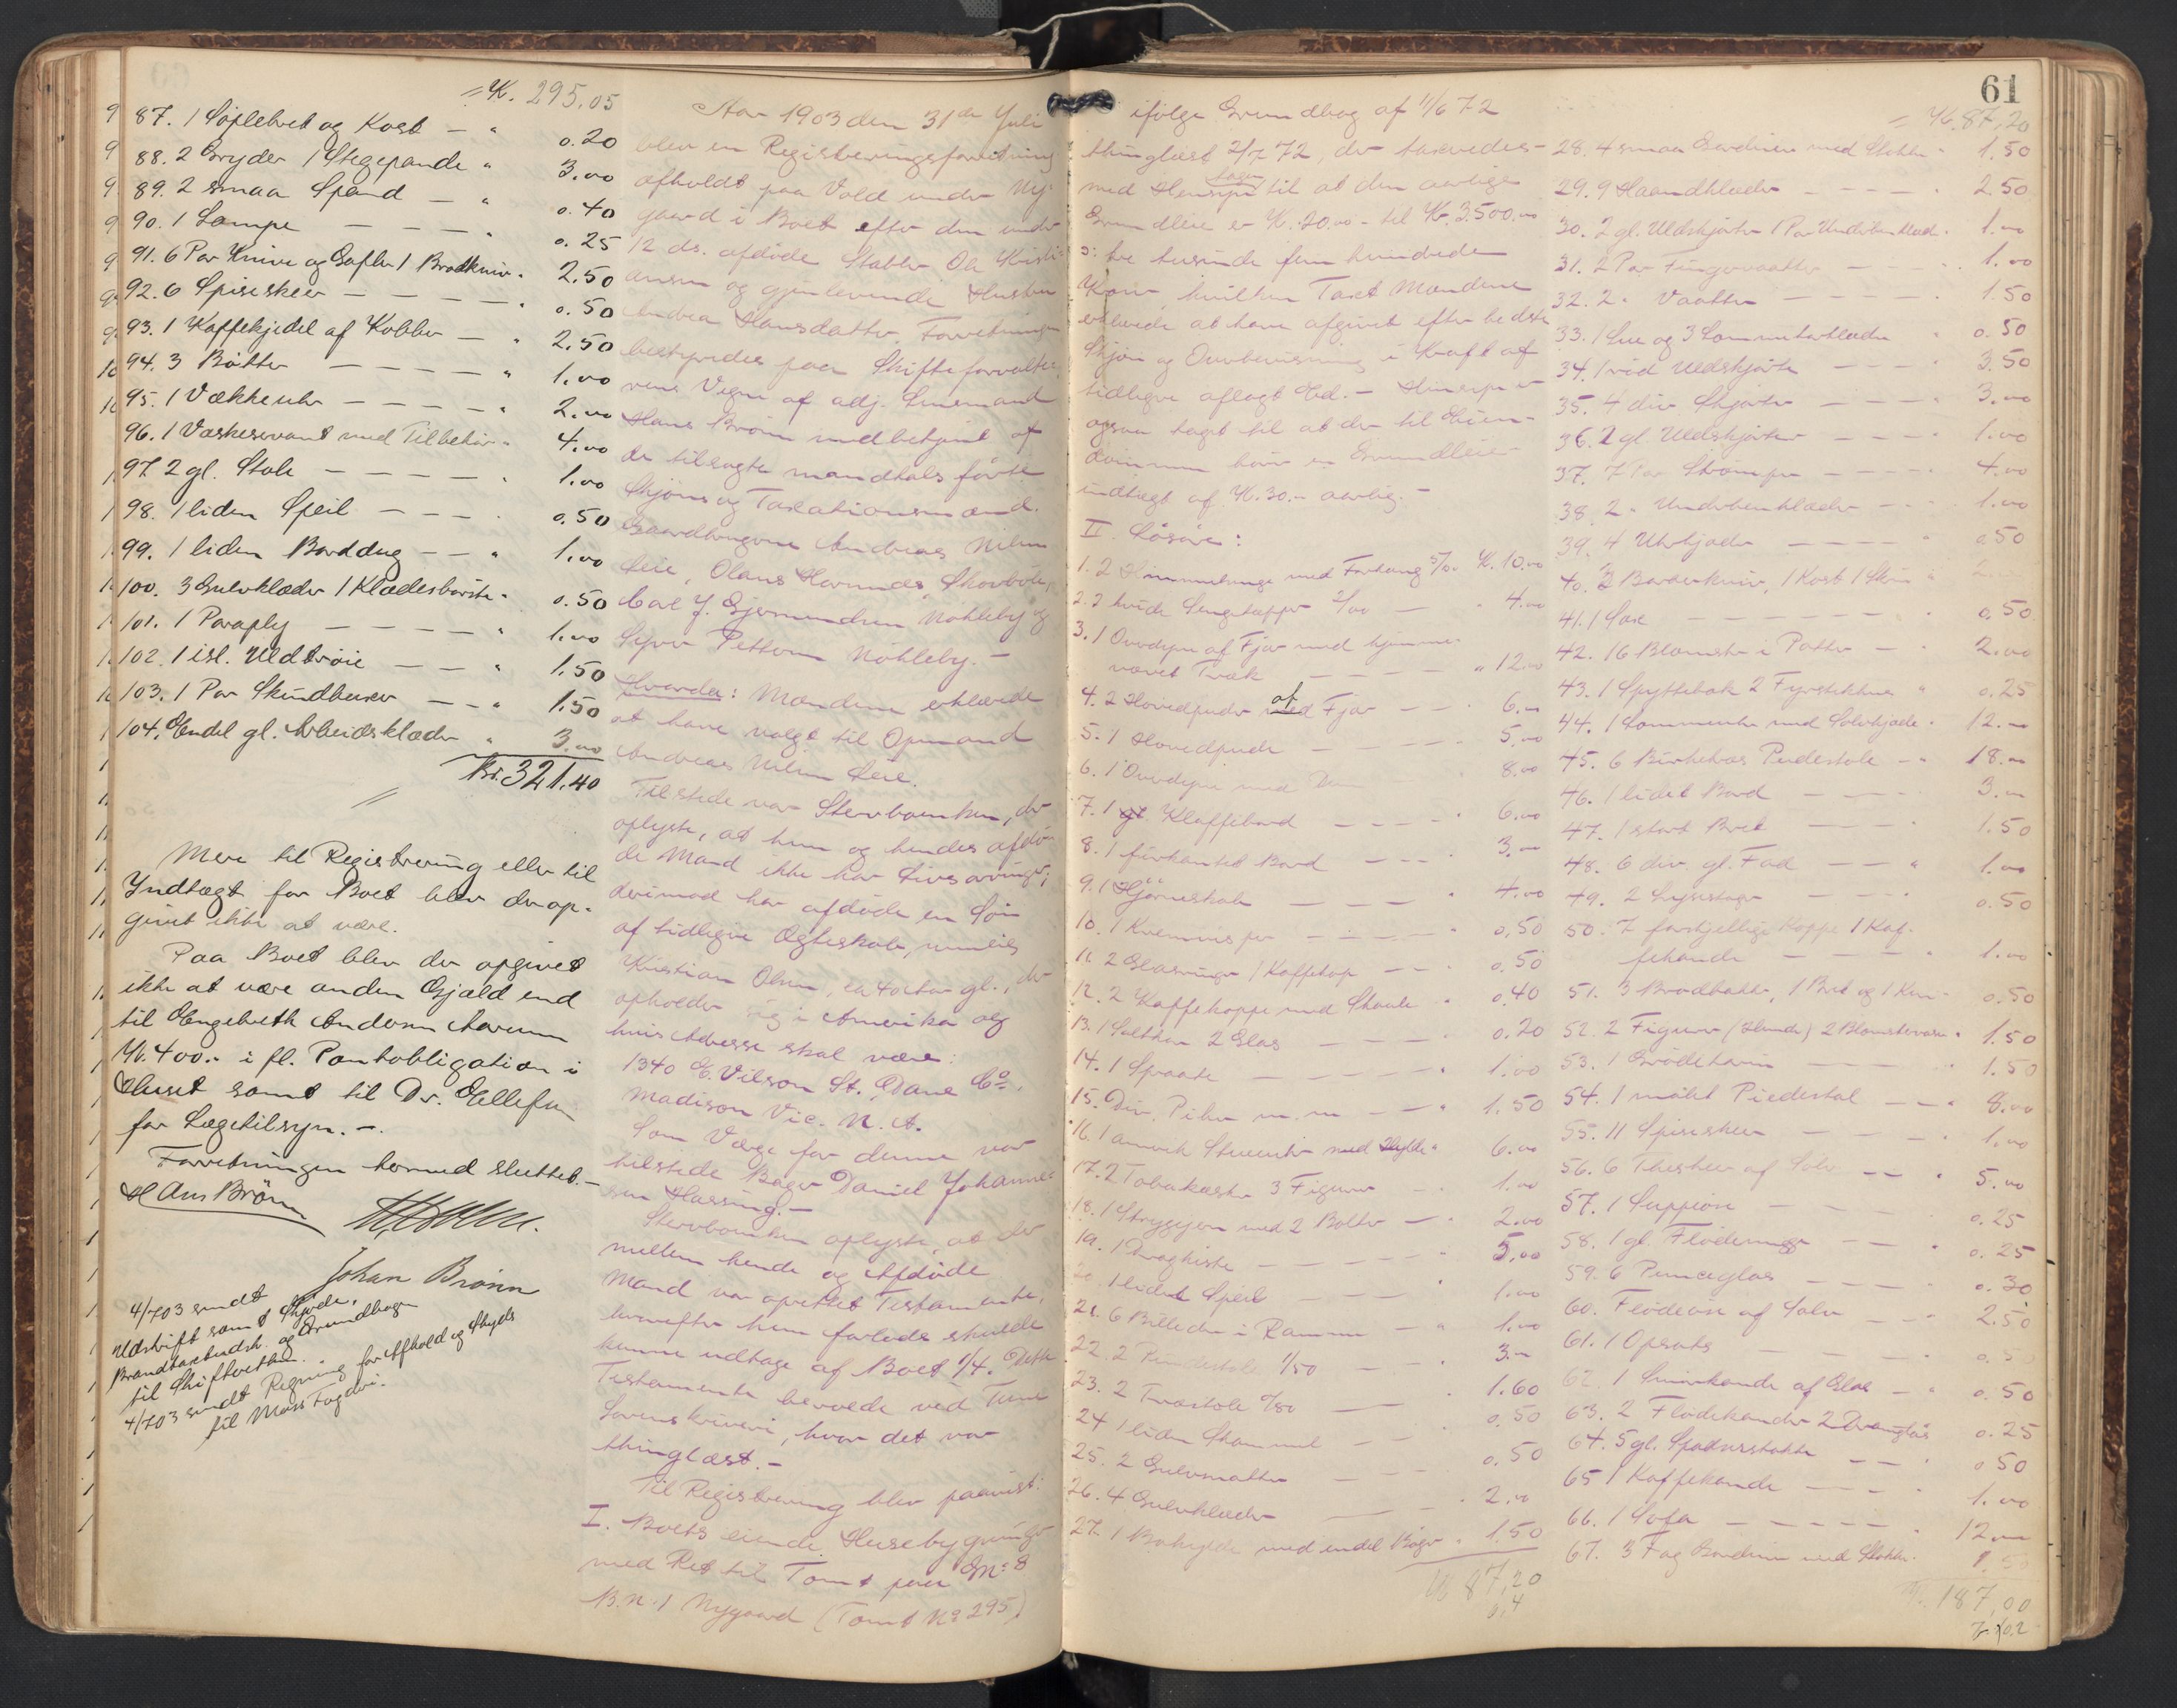 = K. 295.05
87. 1 Søplebret og Kost — " 0.20
88. 2 Gryder 1 Stegepande " 3.00
89. 2 smaa Spand — " 0.40
90. 1 Lampe — — — " 0.25
91. 6 Par Knive og Gafler 1 Brødkniv " 2.50
92. 6 Spiseskeer — — — " 0.50
93. 1 Kaffekjedel af Kobber — " 2.50
94. 3 Bøtter — — — — " 1.00
95. 1 Vækkeuhr — — — — " 2.00
96. 1 Vaskeservant med Tilbehør " 4.00
97. 2 gl. Stole — — — — " 1.00
98. 1 liden Speil — — — 0.50
99. 1 liden Borddug — — " 1.00
100. 3 Gulvklæder 1 Klædesbørste " 0.50
101. 1 Paraply — — — — " 1.00
102. 1 isl. Uldtrøie — — " 1.50
103. 1 Par Skindbuxer — — " 1.50
104. Endel gl. Arbeidsklæder " 3.00
Kr. 321.40
Mere til Registrering eller til
Indtægt for Boet blev der op-
givet ikke at være.
Paa Boet blev der opgivet
ikke at være anden Gjæld end
til Engebreth Andersen Aarum
K. 400.- i fl. Pantobligation i
Huset samt til Dr. Ellefsen
for Lægetilsyn. -.
Forretningen hermed sluttet. -
Hans Brønn
Johan Brønn
4/7 03 sendt
Udskrift samt Skjøde,
Brandtaxtudsk. og Grundbogen
til Skifteretten.
4/7 03 sendt Regning for Afhold og Skyds
til Moss Fogderi.
Aar 1903 den 31te Juli
blev en Registreringsforretning
afholdt paa Vold under Ny-
gaard i Boet efter den under
12 ds. afdøde Stabler Ole Kristi-
ansen og gjenlevende Hustru
Andrea Hansdatter. Forretningen
bestyredes paa Skifteforvalte-
rens Vegne af adj. Lensmand
Hans Brønn med betjent af
de tilsagte mandtals førte
Skjøns og Taxationsmænd.
Gaardbrugerne Andreas Nilsen
Leie, Olaus Hannæs, Skovbøle,
Carl J. Gjermundsen Nøkleby og
Sigvor Pettersen Nøkleby. -
Hvorda: Mændene erklærede
at have valgt til Opmand
Andreas Nilsen Leie.
Tilstede var Stervboenken, der
oplyste, at hun og hendes afdø-
de Mand ikke har Livsarvinger,
derimod har afdøde en Søn
af tidligere Ægteskab, nemlig
Kristian Olsen, ca 40 Aar gl., der
opholder sig i Amerika og
hvis Adresse skal være:
1340 E. Vilson St., Dane Co.
Madison Vic. N. A.
Som Værge for denne var
tilstede Bager Daniel Johanne-
sen Hassing. -
Stervboenken oplyste, at der
mellem hende og Afdøde
Mand var oprettet Testamente,
hvorefter hun forlods skulde
kunne udtage af Boet 1/4. Dette
Testamente beroede ved Tune
Sorenskriveri, hvor det var
thinglæst. -
Til Registrering blev paavist:
I. Boets eiende Husebygninger
med Ret til Tomt paa G.N. 8
B.N. 1 Nygaard (Tomt No 295)
61
ifølge Grundbog af 11/6 72
thinglæst 2/7 72, der taxeredes
med Hensyn tagen til at den aarlige
Grundleie er K. 20.00 - til K. 3500.00
ɔ: tre tusinde fem hundrede
Kroner, hvilken Taxt Mændene
erklærede at have afgivet efter bedste
Skjøn og Overbevisning i Kraft af
tidligere aflagt Ed. - Hensyn er
ogsaa taget til at der til Eien-
dommen hører en Grundleie-
indtægt af K. 30.- aarlig. -
II. Løsøre:
1. 2 Himmelsenge med Forhang 5/00 K. 10.00
2. 2 hvide Sengetæpper 2/00 — " 4.00
3. 1 Overdyne af Fjær med hjemme-
vævet Træk — — — " 12.00
4. 2 Hovedpuder af Fjær — — " 6.00
5. 1 Hovedpude — — — " 5.00
6. 1 Overdyne med 8.00
7. 1 Klaffebord — — — " 6.00
8. 1 firkantet Bord — — — " 3.00
9. 1 Hjørneskab — — — " 4.00
10. 1 — — — " 0.50
11. 2 Glasringe 1 Kaffekop — — " 0.50
12. 2 Kaffekopper med Skaale " 0.40
13. 1 Saltkar 2 Glas — — — " 0.20
14. 1 — — — — " 1.00
15. Div. m. m — — " 1.50
16. 1 amerik Stueuhr med Hylde " 6.00
17. 2 Tobakæsker 3 Figurer — " 1.00
18. 1 Strygejern med 2 Bolter — " 2.00
19. 1 Dragkiste — — — " 5.00
20. 1 lidet Speil — — — " 1.00
21. 6 Billeder i Ramme — " 1.00
22. 2 Pindestole 1/50 — — " 3.—
23. 2 Træstole 0/80 — — " 1.60
24. 1 liden Skammel — — " 0.50
25. 2 Gulvmatter — — " 0.50
26. 4 Gulvklæder — — " 2.00
27. 1 Boghylde med endel Bøger " 1.50
K 87,20
= K. 87,20
28. 4 smaa Gardiner med Stokke " 1.50
29. 9 Haandklæder — — — " 2.50
30. 2 gl. Uldskjorter 1 Par Underbenklæd. " 1.00
31. 2 Par Fingervaatter — — " 1.00
32. 2 " Vaatter — — — — " 1.50
33. 1 Lue og 3 Lommetørklæder " 0.50
34. 1 rød Uldskjorte — — — " 3.50
35. 4 div. Skjorter — — — " 3.00
36. 2 gl Uldskjorter — — — " 1.00
37. 7 Par Strømper — — — " 4.00
38. 2 " Underbenklæder — — " 1.00
39. 4 Uhrkjæder — — — " 0.50
40. 2 Barberknive, 1 Kost 1 "
41. 1 Sax — — — — " 0.50
42. 16 Blomster i Potter — " 2.00
43. 1 Spyttebak 2 " 0.25
44. 1 Lommeuhr med Sølvkjæde " 12.—
45. 6 Birketræs Pindestole — " 18.00
46. 1 lidet Bord — — — " 3.—
47. 1 stort Bret — — — " 1.50
48. 6 div. gl. Fad — — " 1.00
49. 2 Lysestager — — — " 0.50
50. 7 forskjellige Kopper 1 Kaf-
fekande — — — — " 1.00
51. 3 Brødbakker, 1 Bret og 1 0.50
52. 2 Figurer (Hunde) 2 Blomstervaser " 1.50
53. 1 — — — " 1.50
54. 1 malet Piedestal — — " 8.00
55. 11 Spiseskeer — — — " 1.00
56. 6 Theskeer af Sølv — — " 5.00
57. 1 — — — 0.25
58. 1 gl. Flødemugge — — " 0.25
59. 6 Punceglas — — — " 0.30
60. Flødeøse af Sølv — — " 2.50
61. 1 Opsats — — — "
62. 1 af Glas — " 0.50
63. 2 Flødekander 2 0.25
64. 5 gl. Spadserstokke — — " 0.50
65. 1 Kaffekande — — — " 1.00
66. 1 Sofa — — — — " 12.00
67. 3 Fag Gardiner med Stokke "
K. 187,00